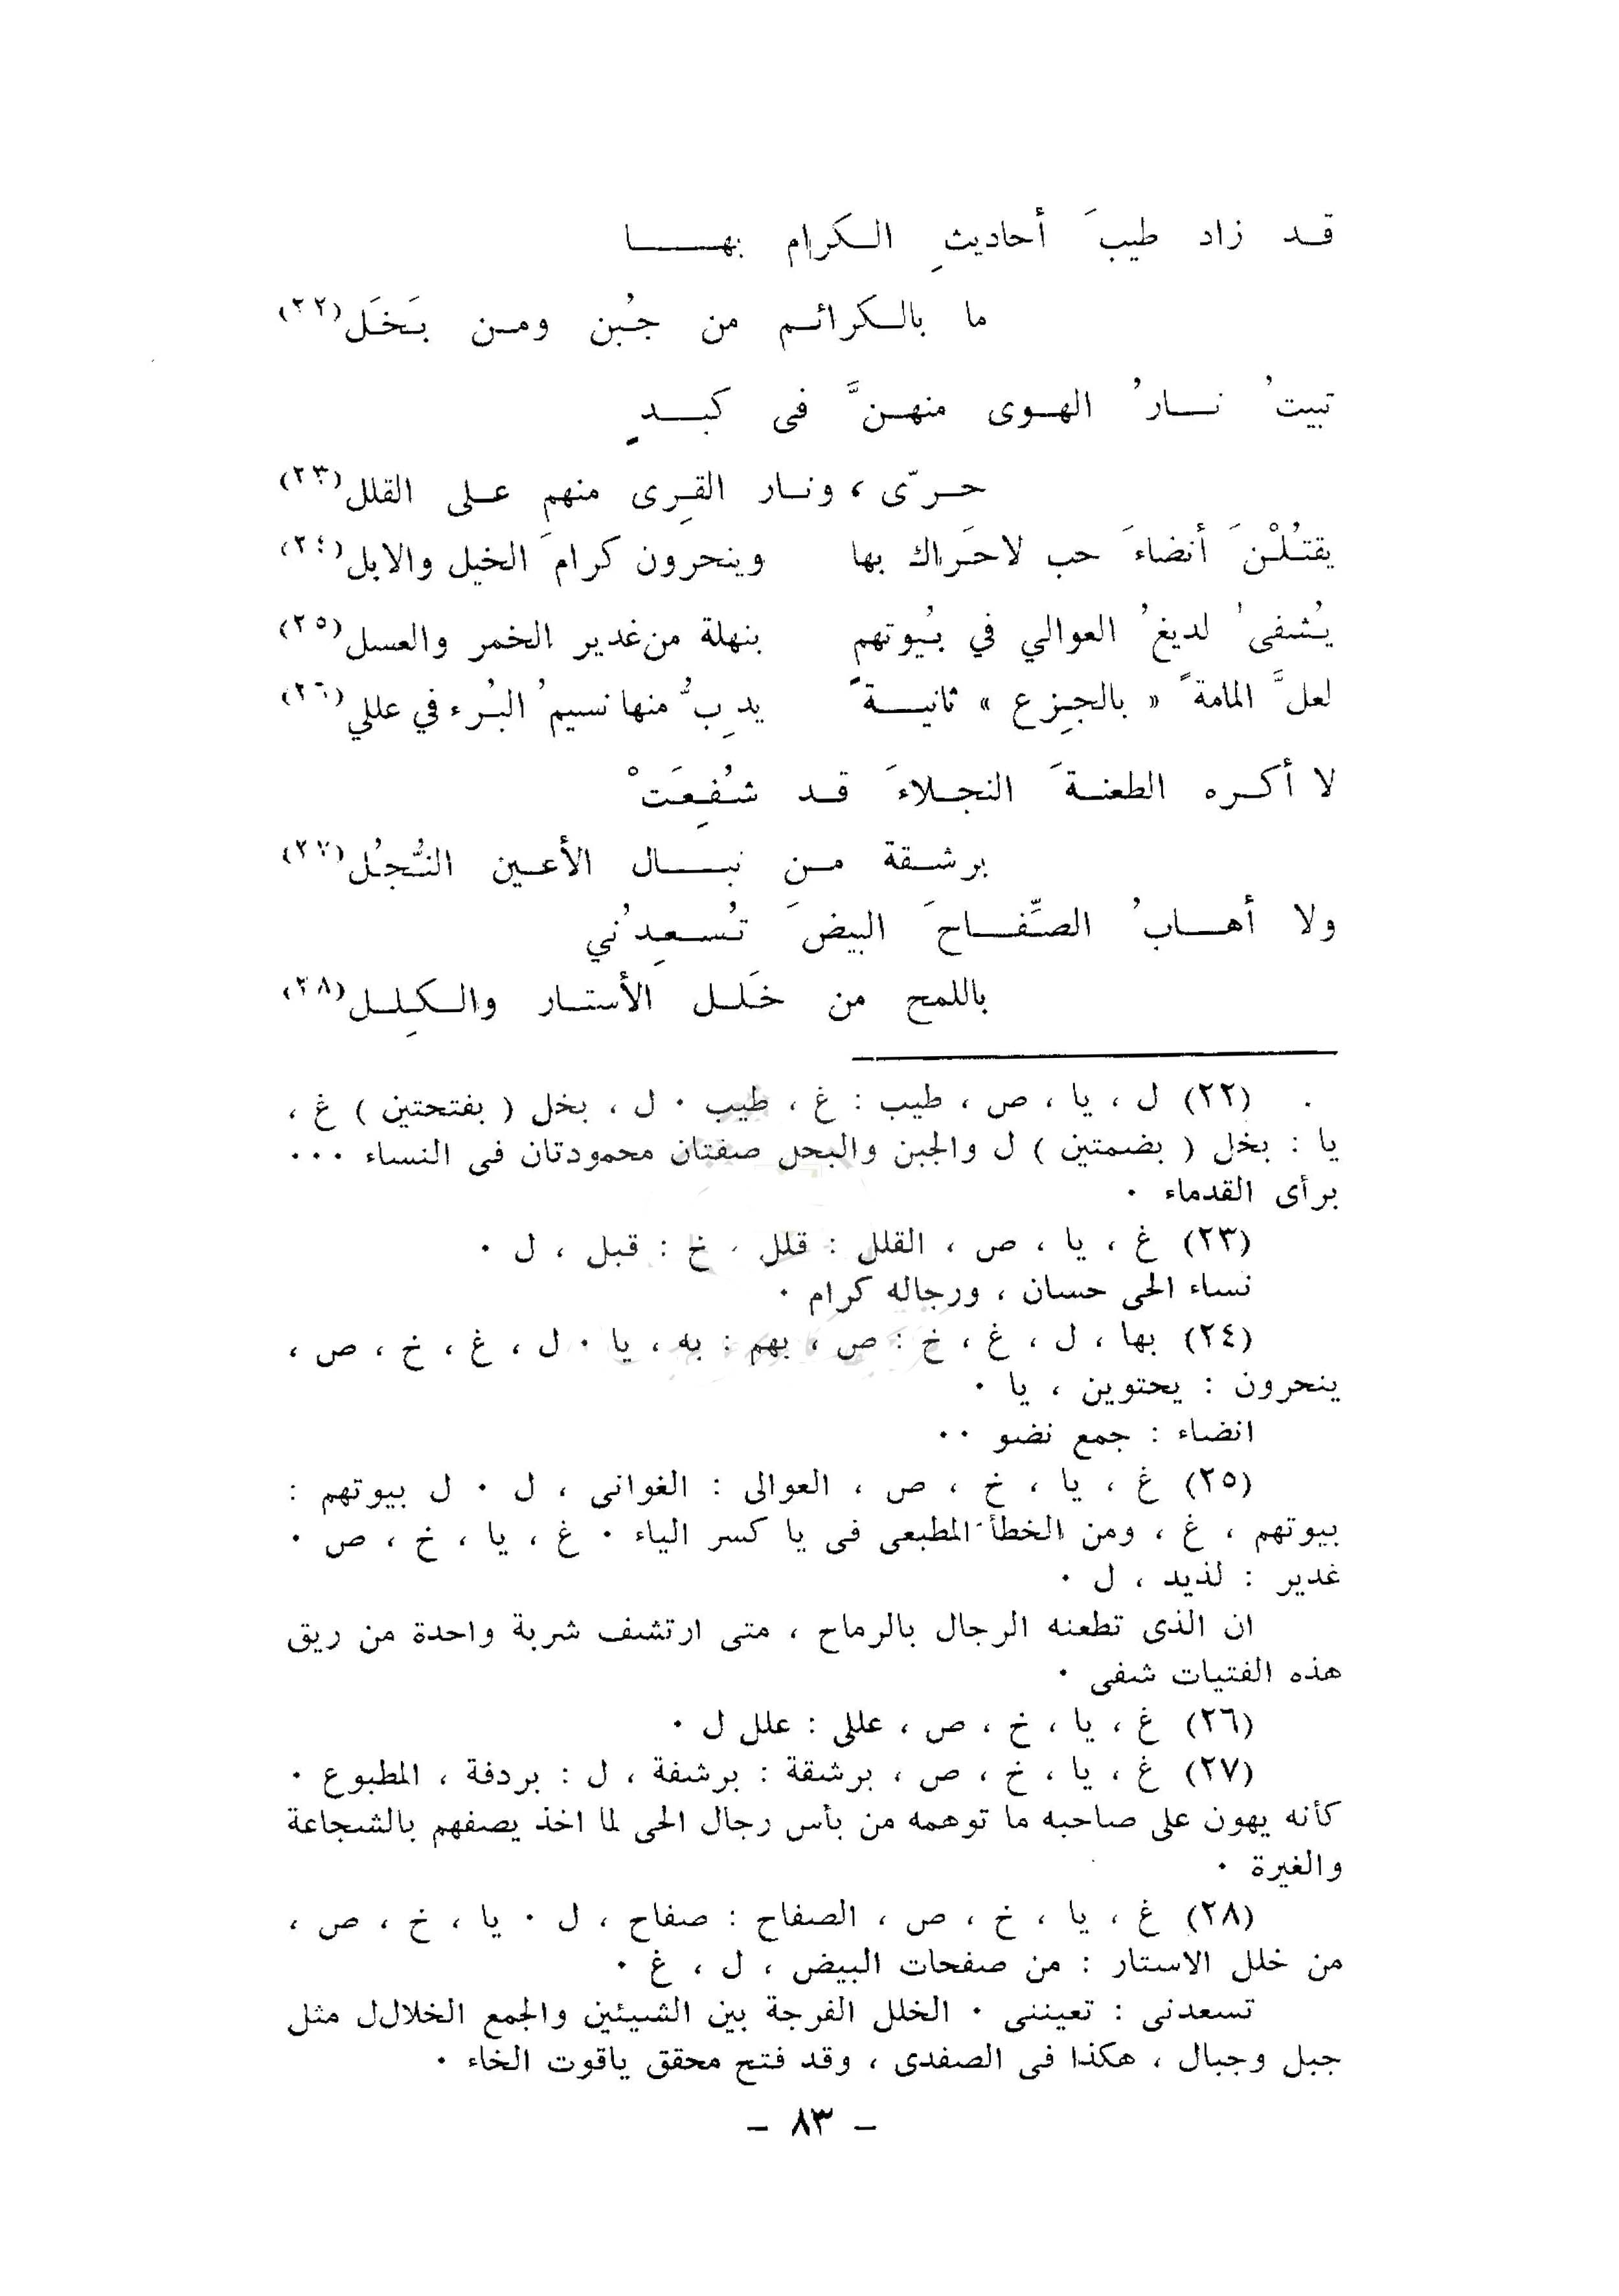 قد زاد طيبَ أحاديثِ الكرام بها
ما بالكرائم من جُبن ومن بَخَل(٢٢)
تبيتُ نارُ الهوى منهنَّ فى كبدٍ
حرّى ، ونار القِرى منهمِ على القلل(٢٣)
يقتُلْنَ أنضاءَ حب لاحَراك بها وينحرون كرامَ الخيل والابل(٢٤)
يُشفىُ لديغُ العوالي في بُيوتهمِ بنهلة من غدير الخمر والعسل(٢٥)
لعلَّ المامةً « بالجِزع » ثانيةً يدِبُّ منها نسيمُ البُرء في عللي(٢٦)
لا أكره الطعنةَ النجلاءَ قد شُفِعَتْ
برشقة من نبال الأعين النُّجُل(٢٧)
ولا أهابُ الصِّفاحَ البيضَ تُسعِدُني
باللمح من خَلل الأستار والكِلل(٢٨)
(٢٢) ل ، يا ، ص ، طيب : غ ، طيب ٠ ل ، بخل ( بفتحتين ) غ ،
يا : بخل ( بضمتين ) ل والجبن والبخل صفتان محمودتان فى النساء ٠٠٠
برأى القدماء ٠
(٢٣) غ ، يا ، ص ، القلل : قلل ، خ : قبل ، ل ٠
نساء الحى حسان ، ورجاله كرام ٠
(٢٤) بها ، ل ، غ ، خ : ص ، بهم : به ، يا ٠ ل ، غ ، خ ، ص ،
ينحرون : يحتوين ، يا ٠
انضاء : جمع نضو ٠٠
(٢٥) غ ، يا ، خ ، ص ، العوالى : الغوانى ، ل ٠ ل بيوتهم :
بيوتهم ، غ ، ومن الخطأ المطبعى فى يا كسر الياء ٠ غ ، يا ، خ ، ص ٠
غدير : لذيد ، ل ٠
ان الذى تطعنه الرجال بالرماح ، متى ارتشف شربة واحدة من ريق
هذه الفتيات شفى ٠
(٢٦) غ ، يا ، خ ، ص ، عللى : علل ل ٠
(٢٧) غ ، يا ، خ ، ص ، برشقة : برشفة ، ل : بردفة ، المطبوع ٠
كأنه يهون على صاحبه ما توهمه من بأس رجال الحى لما اخذ يصفهم بالشجاعة
والغيرة ٠
(٢٨) غ ، يا ، خ ، ص ، الصفاح : صفاح ، ل ٠ يا ، خ ، ص ،
من خلل الاستار : من صفحات البيض ، ل ، غ ٠
تسعدنى : تعيننى ٠ الخلل الفرجة بين الشيئين والجمع الخلالل مثل
جبل وجبال ، هكذا فى الصفدى ، وقد فتح محقق ياقوت الخاء ٠
- ٨٣ -